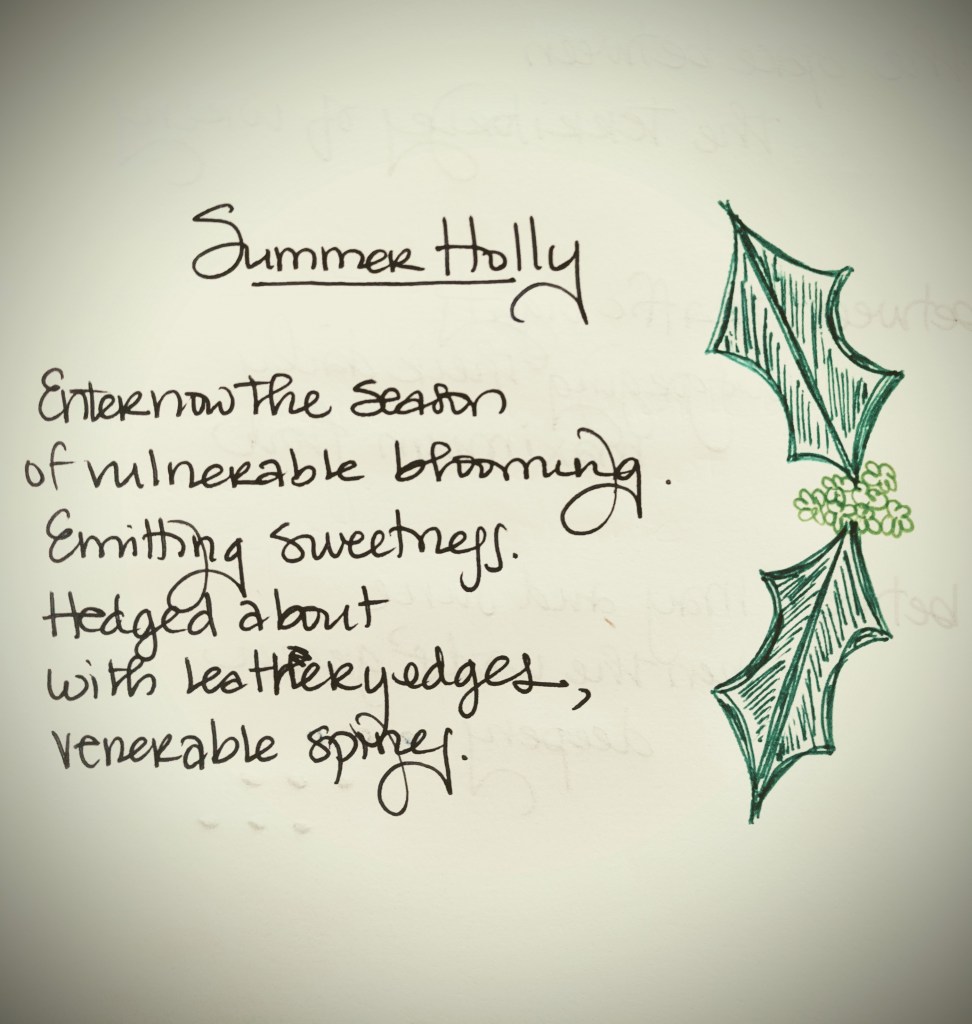 Summer Holly
Enter now the season
of vulnerable blooming.
Emitting sweetness.
Hedged about
with leathery edges,
venerable spines.